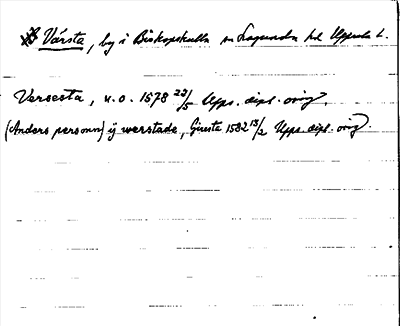 Vårsta, by i Biskopskulla sn Lagunda hd Uppsala l.
Versesta, u.o. 1578 27/5 Upps. dipl. orig.
(Anders personn) ij werstade, Giresta 1582 13/2 Upps. dipl. orig.